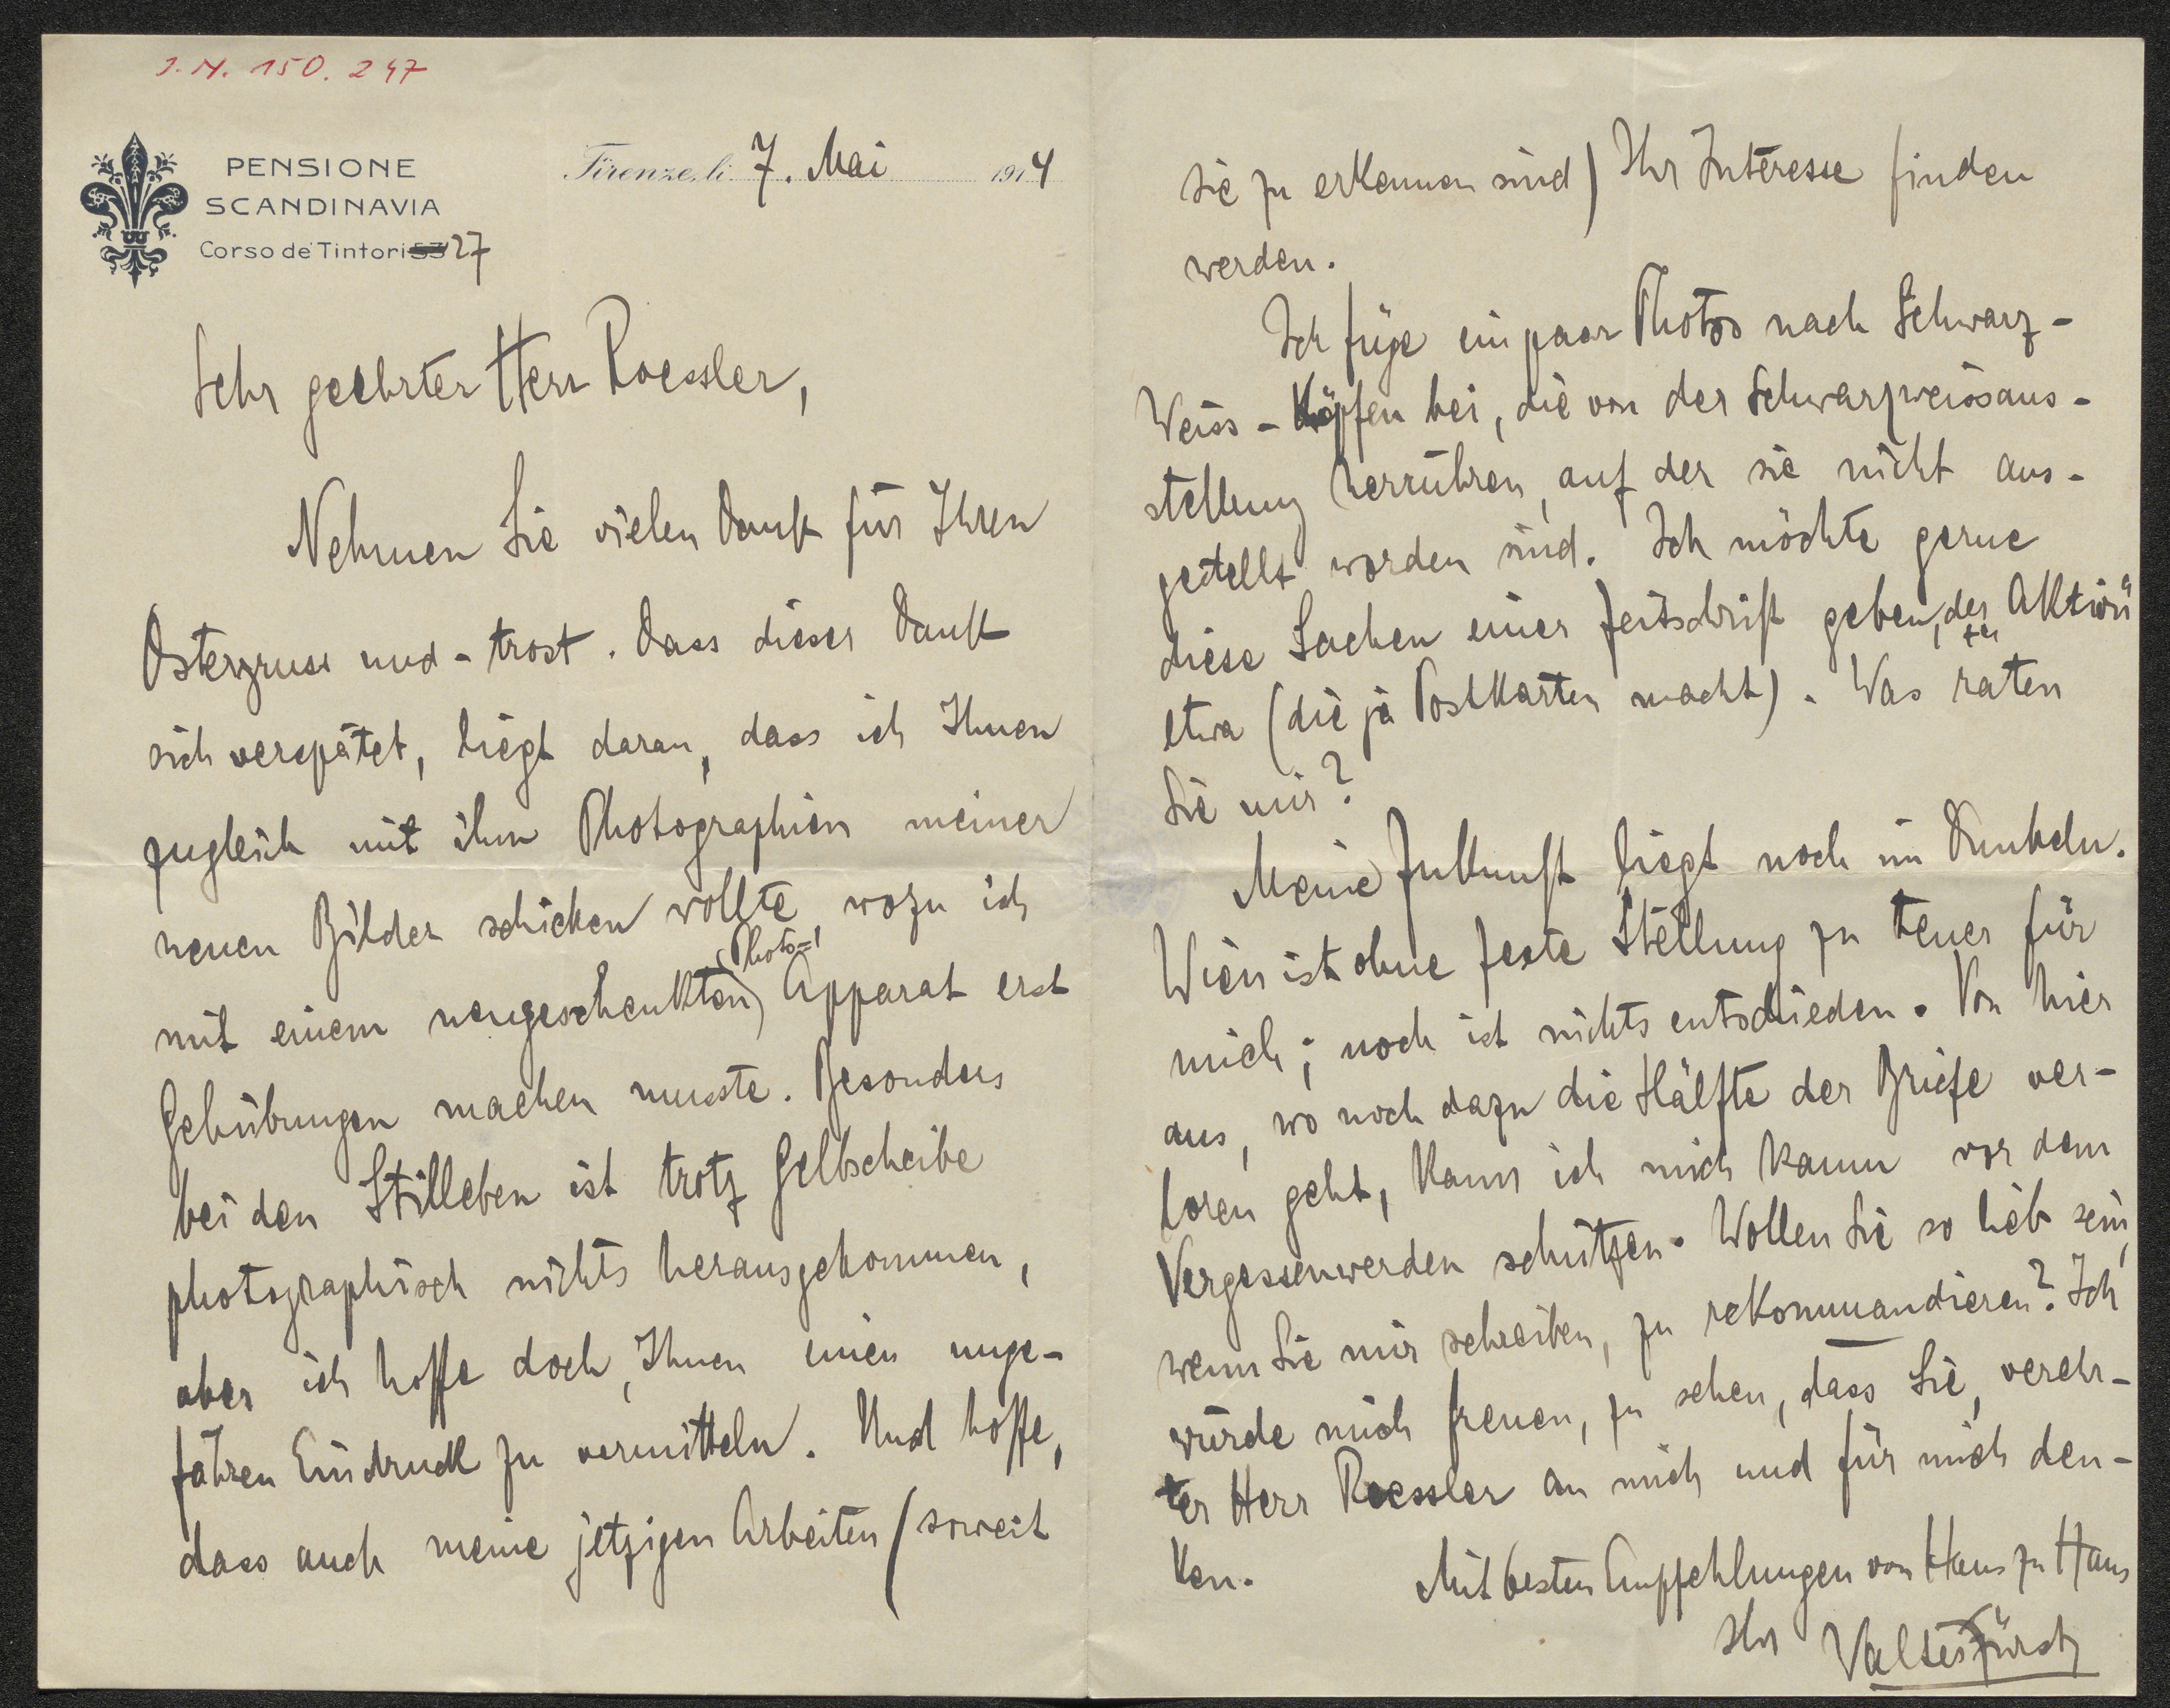 J.N. 150.247
PENSIONE
SCANDINAVIA
Corso de' Tintori 53 27
Firenze, li 7. Mai 1914
Sehr geehrter Herr Roessler,
Nehmen Sie vielen Dank für Ihren
Ostergruss und -trost. Dass dieser Dank
sich verspätet, liegt daran, dass ich Ihnen
zugleich mit ihm Photographien meiner
neuen Bilder schicken wollte, wozu ich
mit einem neugeschenkten (Photo=) Apparat erst
Gehübungen machen musste. Besonders
bei den Stilleben ist trotz Gelbscheibe
photographisch nichts herausgekommen,
aber ich hoffe doch, Ihnen einen unge-
fähren Eindruck zu vermitteln. Und hoffe,
dass auch meine jetzigen Arbeiten (soweit
sie zu erkennen sind) Ihr Interesse finden
werden.
Ich füge ein paar Photos nach Schwarz-
Weiss-Köpfen bei, die von der Schwarzweissaus-
stellung herrühren, auf der sie nicht aus-
gestellt worden sind. Ich möchte gerne
diese Sachen einer Zeitschrift geben, der „Aktion“
etwa (die ja Postkarten macht). Was raten
Sie mir?
Meine Zukunft liegt noch im Dunkeln.
Wien ist ohne feste Stellung zu teuer für
mich; noch ist nichts entschieden. Von hier
aus, wo noch dazu die Hälfte der Briefe ver-
loren geht, kann ich mich kaum vor dem
Vergessenwerden schützen. Wollen Sie so lieb sein,
wenn Sie mir schreiben, zu rekommandieren? Ich
würde mich freuen, zu sehen, dass Sie, verehr-
ter Herr Roessler an mich und für mich den-
ken.
Mit besten Empfehlungen von Haus zu Haus
Ihr Valter Fürst